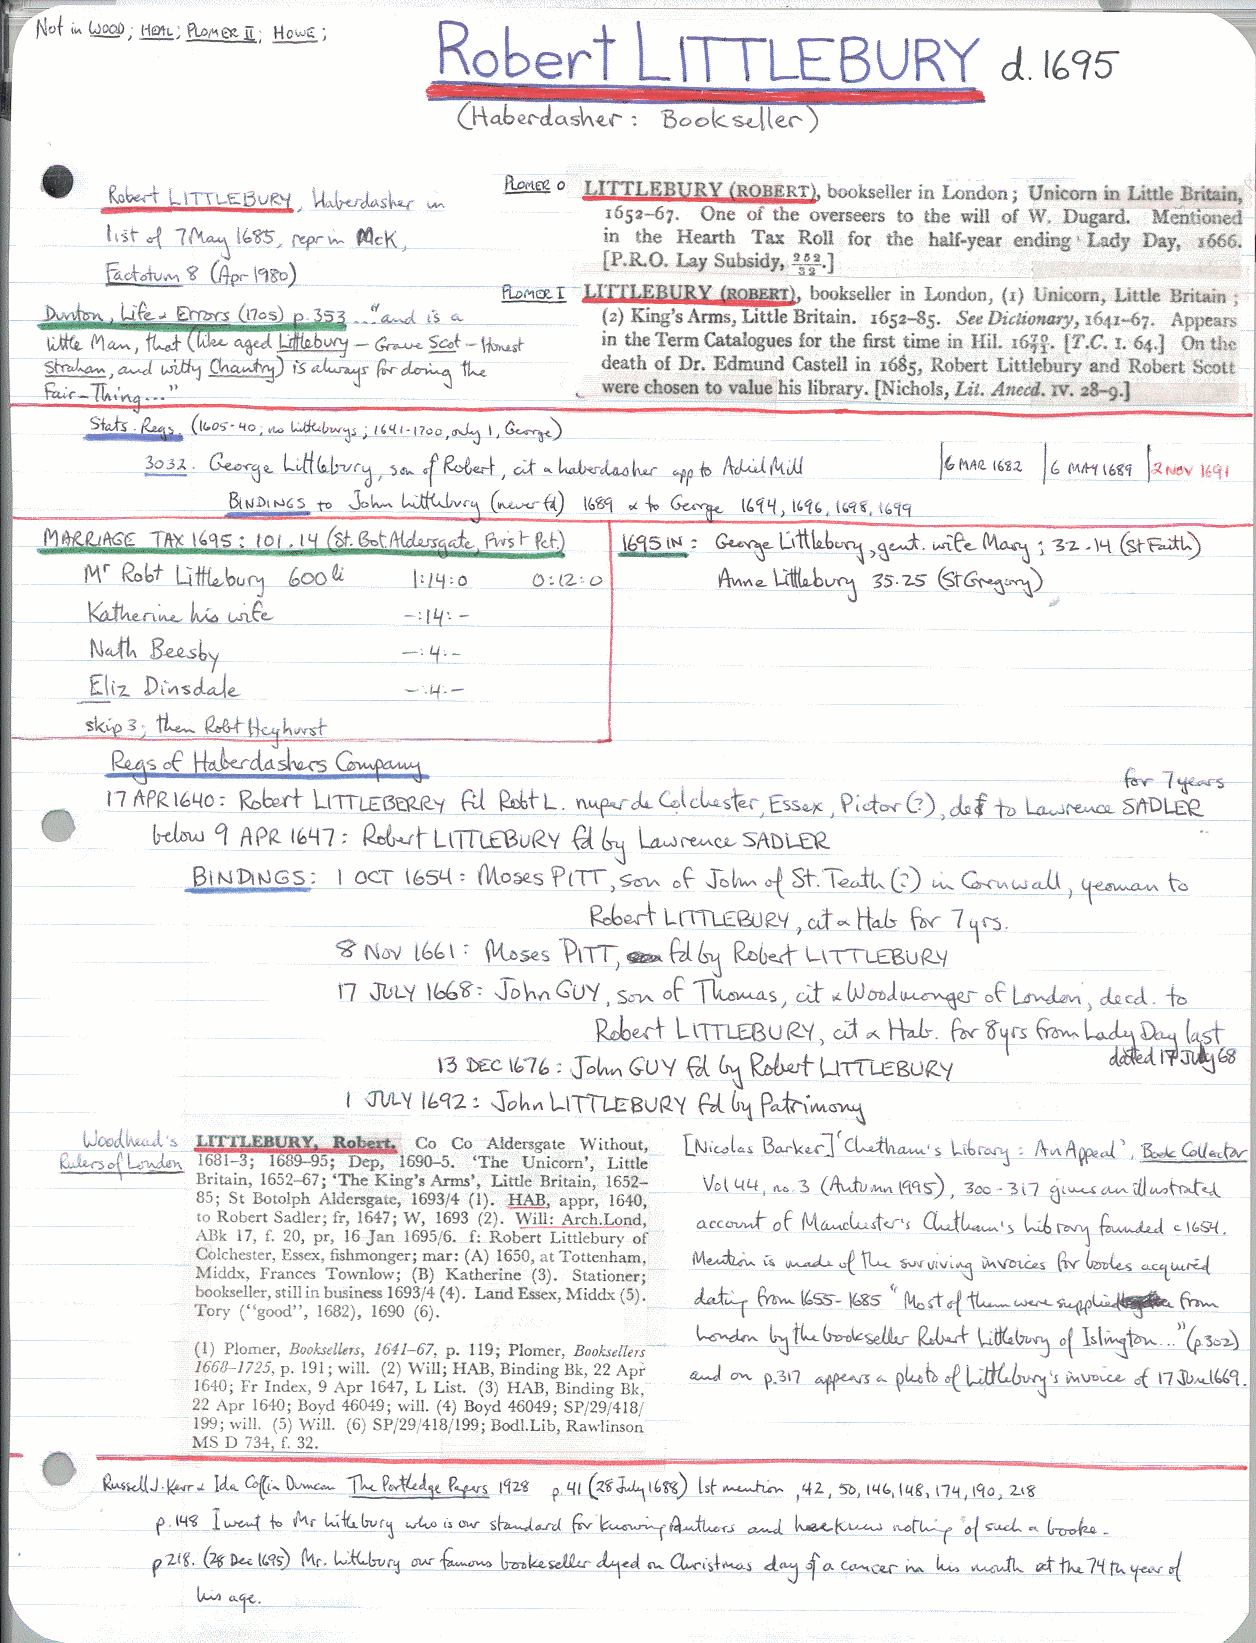 Not in WOOD; HEAL; PLOMER II; HOWE;
Robert LITTLEBURY d. 1695
(Haberdasher: Bookseller)
Robert LITTLEBURY, Haberdasher in
list of 7 May 1685, repr in McK,
Factotum 8 (Apr 1980)
Dunton, Life & Errors (1705) p.353 ... "and is a
little Man, that (like aged Littlebury - Grave Scot - Honest
Strahan, and witty Chantry) is always for doing the
Fair-Thing..."
PLOMER 0
LITTLEBURY (ROBERT), bookseller in London; Unicorn in Little Britain,
1652-67. One of the overseers to the will of W. Dugard. Mentioned
in the Hearth Tax Roll for the half-year ending Lady Day, 1666.
[P.R.O. Lay Subsidy, 252/32.]
PLOMER I
LITTLEBURY (ROBERT), bookseller in London, (1) Unicorn, Little Britain;
(2) King's Arms, Little Britain. 1652-85. See Dictionary, 1641-67. Appears
in the Term Catalogues for the first time in Hil. [T.C. I. 64.] On the
death of Dr. Edmund Castell in 1685, Robert Littlebury and Robert Scott
were chosen to value his library. [Nichols, Lit. Anecd. IV. 28-9.]
Stats. Regs. (1605-40, no Littleburys; 1641-1700, only 1, George)
3032. George Littlebury, son of Robert, cit & haberdasher app to Adiel Mill |6 MAR 1682 |6 MAY 1689 |2 NOV 1691
BINDINGS to John Littlebury (never fd) 1689 & to George 1694, 1696, 1698, 1699
MARRIAGE TAX 1695: 101.14 (St. Bot. Aldersgate, First Pct.)
Mr Robt Littlebury 600 li 1:14:0 0:12:0
Katherine his wife -:14:-
Nath Beesby -:4:-
Eliz Dinsdale -:4:-
skip 3; then Robt Heyhurst
1695 IN: George Littlebury, gent. wife Mary; 32.14 (St Faith)
Anne Littlebury 35.25 (St Gregory)
Regs of Haberdashers Company
for 7 years
17 APR 1640: Robert LITTLEBERRY fil Robt L. nuper de Colchester, Essex, Pictor (?), def to Lawrence SADLER
below 9 APR 1647: Robert LITTLEBURY fd by Lawrence SADLER
BINDINGS: 1 OCT 1654: Moses PITT, son of John of St. Teath (?) in Cornwall, yeoman to
Robert LITTLEBURY, cit & Hab for 7 yrs.
8 NOV 1661: Moses PITT, fd by Robert LITTLEBURY
17 JULY 1668: John GUY, son of Thomas, cit & Woodmonger of London, decd. to
Robert LITTLEBURY, cit & Hab. for 8 yrs from Lady Day last
dated 17 July 68
13 DEC 1676: John GUY fd by Robert LITTLEBURY
1 JULY 1692: John LITTLEBURY fd by Patrimony
Woodhead's
Rulers of London
LITTLEBURY, Robert. Co Co Aldersgate Without,
1681-3; 1689-95; Dep, 1690-5. 'The Unicorn', Little
Britain, 1652-67; 'The King's Arms', Little Britain, 1652-
85; St Botolph Aldersgate, 1693/4 (1). HAB, appr, 1640,
to Robert Sadler; fr, 1647; W, 1693 (2). Will: Arch.Lond,
ABk 17, f. 20, pr, 16 Jan 1695/6. f: Robert Littlebury of
Colchester, Essex, fishmonger; mar: (A) 1650, at Tottenham,
Middx, Frances Townlow; (B) Katherine (3). Stationer;
bookseller, still in business 1693/4 (4). Land Essex, Middx (5).
Tory ("good", 1682), 1690 (6).
(1) Plomer, Booksellers, 1641-67, p. 119; Plomer, Booksellers
1668-1725, p. 191; will. (2) Will; HAB, Binding Bk, 22 Apr
1640; Fr Index, 9 Apr 1647, L List. (3) HAB, Binding Bk,
22 Apr 1640; Boyd 46049; will. (4) Boyd 46049; SP/29/418/
199; will. (5) Will. (6) SP/29/418/199; Bodl.Lib, Rawlinson
MS D 734, f. 32.
[Nicolas Barker] 'Chetham's Library: An Appeal', Book Collector
Vol 44, no. 3 (Autumn 1995), 300-317 gives an illustrated
account of Manchester's Chetham's Library founded c1654.
Mention is made of the surviving invoices for books acquired
dating from 1655-1685 "Most of them were supplied from
London by the bookseller Robert Littlebury of Islington..." (p302)
and on p.317 appears a photo of Littlebury's invoice of 17 June 1669.
Russell J. Kerr & Ida Coffin Duncan The Portledge Papers 1928 p.41 (28 July 1688) 1st mention, 42, 50, 146, 148, 174, 190, 218
p.148 I went to Mr Littlebury who is our standard for knowing Authors and hee knew nothing of such a booke.
p218. (28 Dec 1695) Mr. Littlebury our famous bookeseller dyed on Christmas day of a cancer in his mouth at the 74th year of
his age.